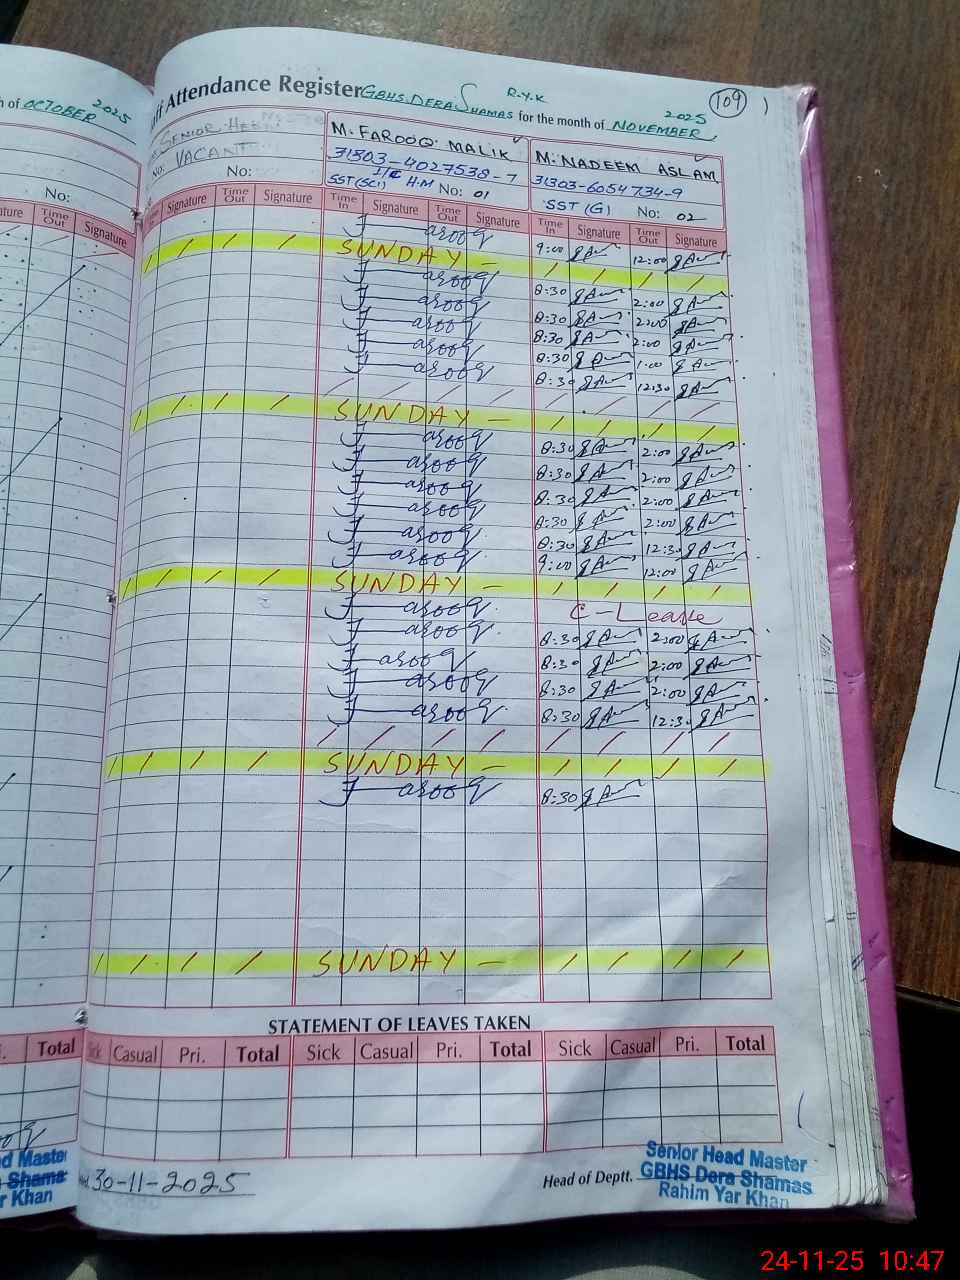 Attendance Register GBHS. DERA SHAMAS R.Y.K for the month of NOVEMBER, 2025 109
h of OCTOBER 2025
SENIOR
No: VACANT No:
M. FAROOQ MALIK
31303-4027538-7
I/C H.M
SST (SCI) No: 01
M. NADEEM ASLAM
31303-6054734-9
SST (G) No: 02
No:
Time Out Signature
Signature Time Out Signature Time In Signature Time Out Signature Time In Signature Time Out Signature
Farooq 9:00 12:00
SUNDAY –
Farooq 8:30 2:00
Farooq 8:30 2:00
Farooq 8:30 2:00
Farooq 8:30 1:00
Farooq 8:30 12:30
SUNDAY –
Farooq 8:30 2:00
Farooq 8:30 2:00
Farooq 8:30 2:00
Farooq 8:30 2:00
Farooq 8:30 12:30
Farooq 9:00 12:00
SUNDAY –
Farooq C-Leave
Farooq 8:30 2:00
Farooq 8:30 2:00
Farooq 8:30 2:00
Farooq 8:30 12:30
SUNDAY –
Farooq 8:30
SUNDAY –
STATEMENT OF LEAVES TAKEN
Total Casual Pri. Total Sick Casual Pri. Total Sick Casual Pri. Total
30-11-2025
Head of Deptt.
Senior Head Master
GBHS Dera Shamas
Rahim Yar Khan
d Master
Shamas
r Khan
24-11-25 10:47